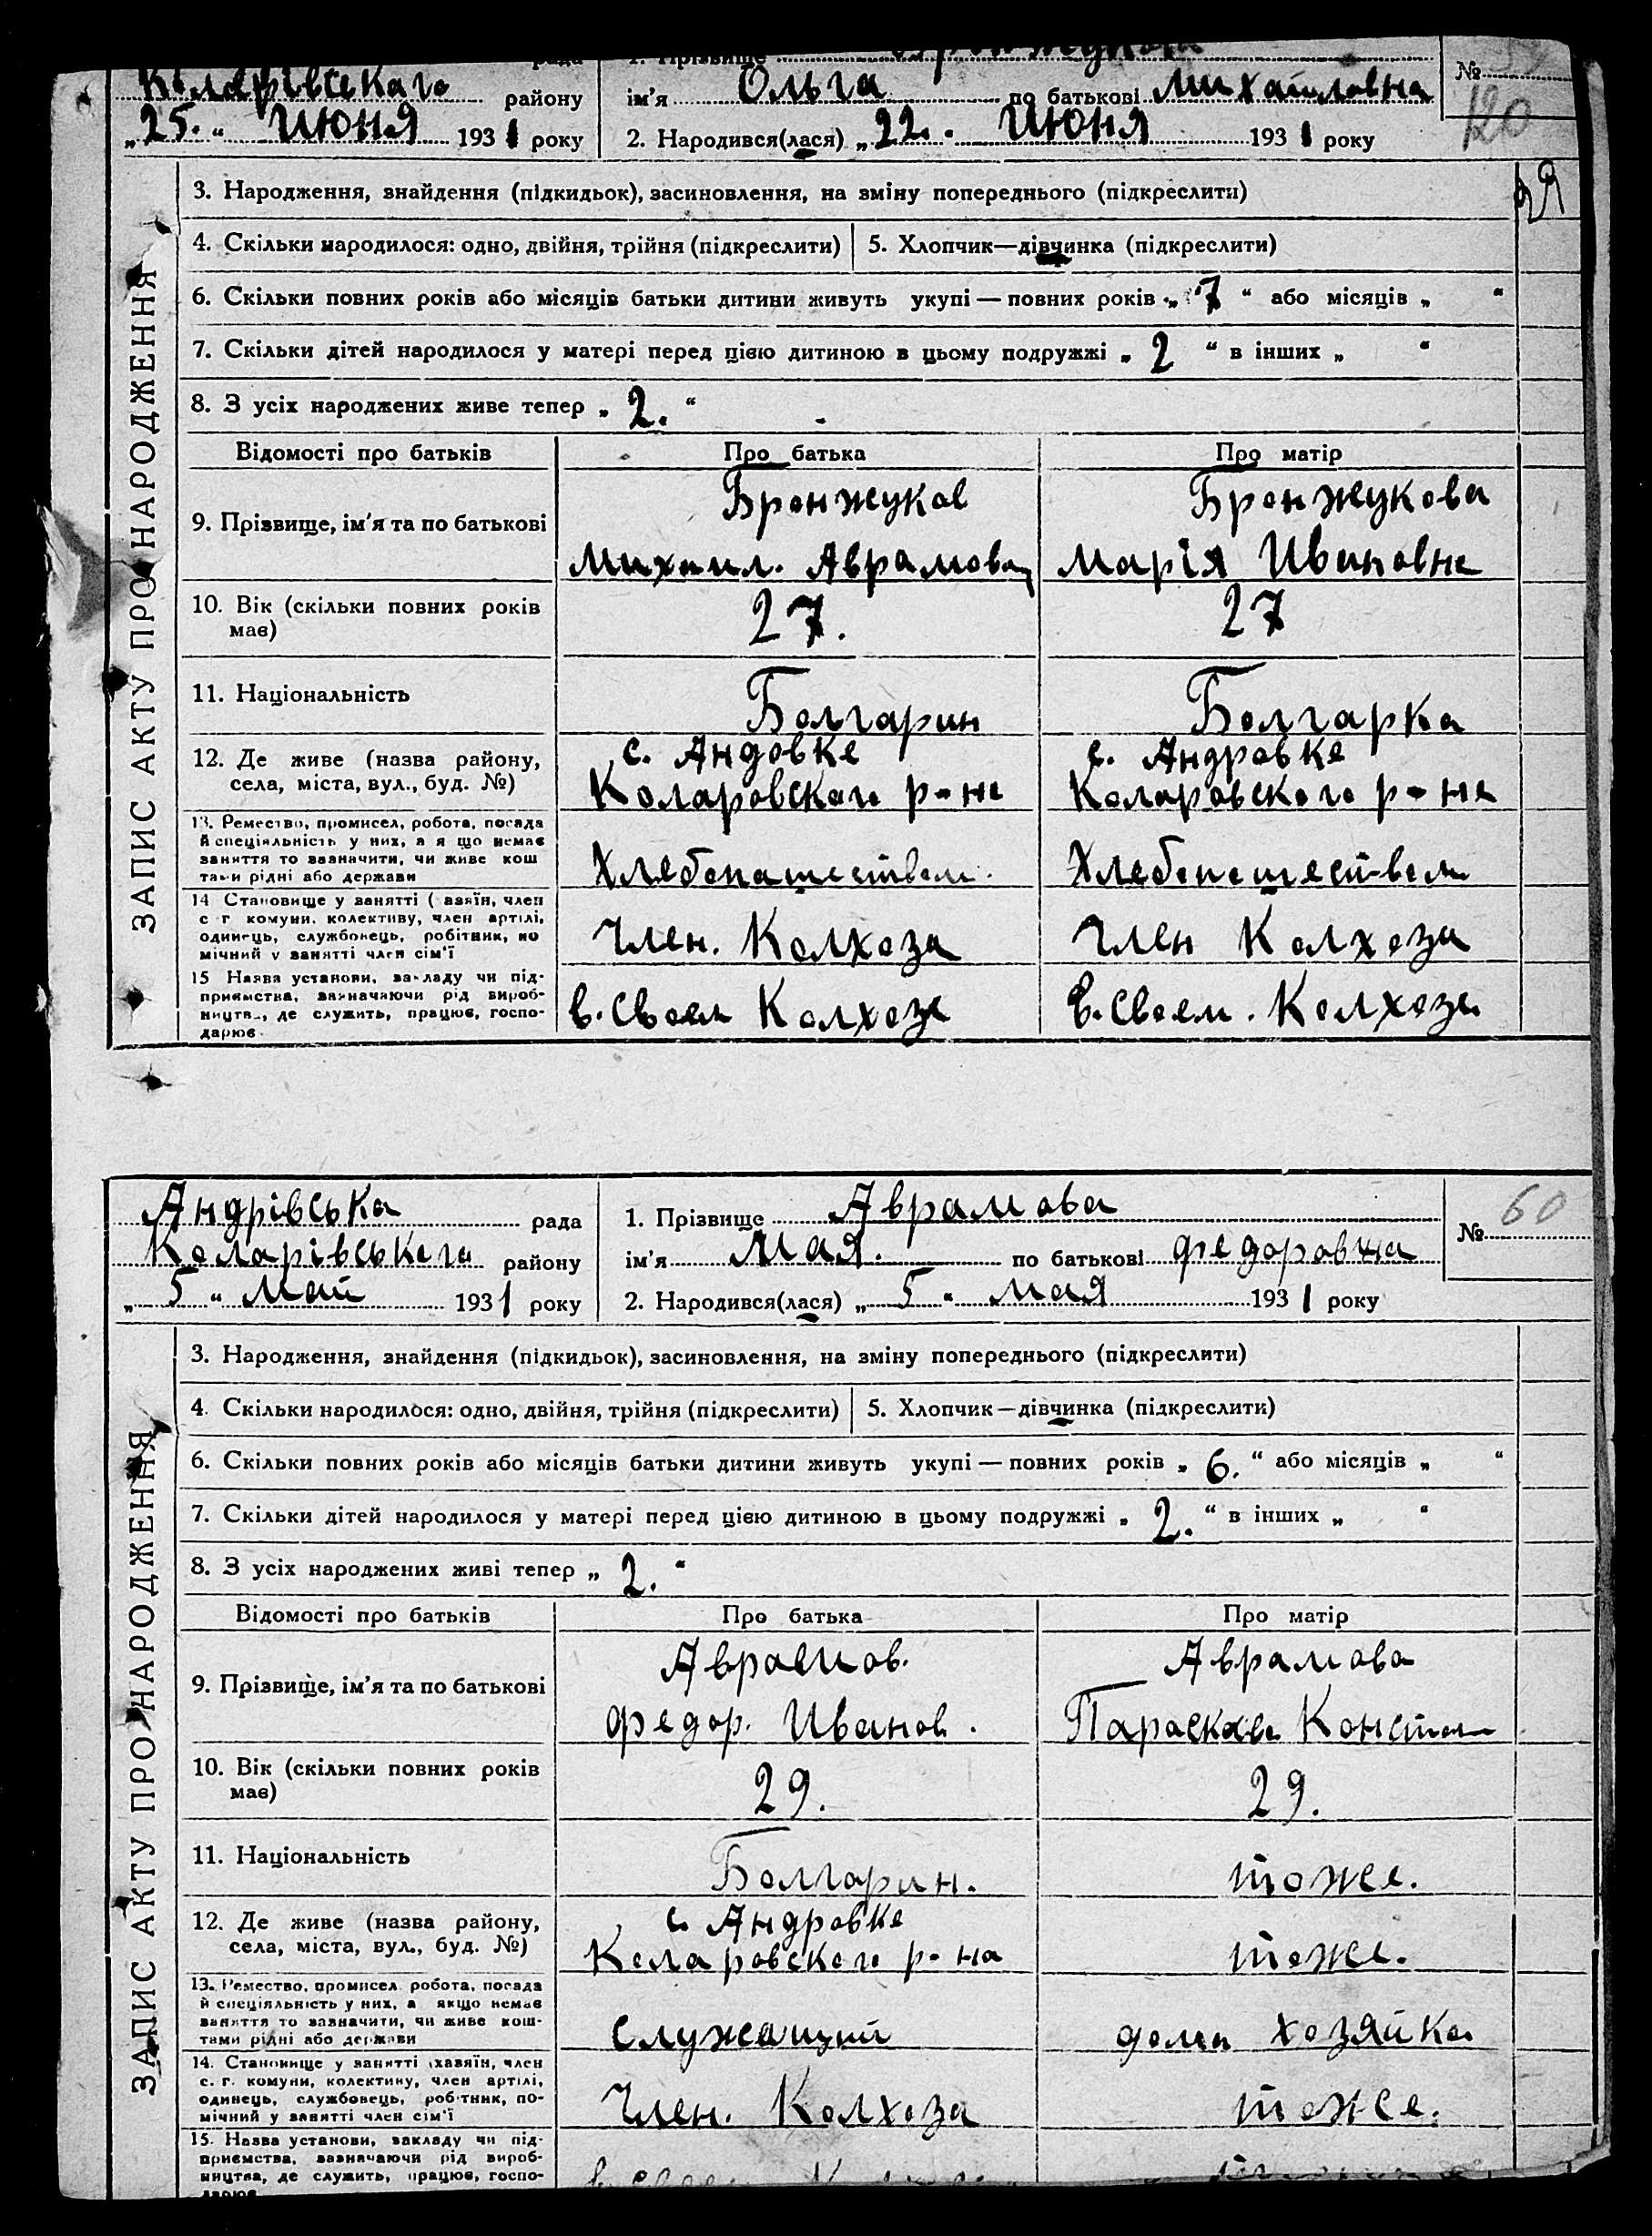 рада
1. Прізвище
Коларівського району
ім'я Ольга по батькові Михайловна
№
120
„25.“ Июня 1931 року
2. Народився(лася) „22.“ Июня 1931 року
ЗАПИС АКТУ ПРО НАРОДЖЕННЯ
3. Народження, знайдення (підкидьок), засиновлення, на зміну попереднього (підкреслити)
4. Скільки народилося: одно, двійня, трійня (підкреслити)
5. Хлопчик—дівчинка (підкреслити)
6. Скільки повних років або місяців батьки дитини живуть укупі — повних років „7“ або місяців „ “
7. Скільки дітей народилося у матері перед цією дитиною в цьому подружжі „2“ в інших „ “
8. З усіх народжених живе тепер „2.“
Відомості про батьків
Про батька
Про матір
9. Прізвище, ім'я та по батькові
Бронжуков
Михаил. Аврамович
Бронжукова
Марія Ивановна
10. Вік (скільки повних років
має)
27.
27
11. Національність
Болгарин
Болгарка
12. Де живе (назва району,
села, міста, вул., буд. №)
с. Андовке
Коларовского р-на
с. Андровке
Коларовского р-на
13. Ремество, промисел, робота, посада
й спеціяльність у них, а я що немає
заняття то зазначити, чи живе кош
тами рідні або держави
Хлебопашеством.
Хлебопашеством
14 Становище у занятті ( азяїн, член
с г. комуни, колективу, член артілі,
одинець, службовець, робітник, по
мічний у занятті член сім'ї
Член. Колхоза
Член Колхоза
15 Назва установи, закладу чи під-
приємства, зазначаючи рід вироб-
ництва, де служить, працює, госпо-
дарює.
в. своем Колхозе
в. своем. Колхозе
Андрівська рада
1. Прізвище Аврамова
№ 60
Коларівського району
ім'я Мая. по батькові Федоровна
„5“ Май 1931 року
2. Народився(лася) „5“ мая 1931 року
ЗАПИС АКТУ ПРО НАРОДЖЕННЯ
3. Народження, знайдення (підкидьок), засиновлення, на зміну попереднього (підкреслити)
4. Скільки народилося: одно, двійня, трійня (підкреслити)
5. Хлопчик—дівчинка (підкреслити)
6. Скільки повних років або місяців батьки дитини живуть укупі — повних років „6.“ або місяців „ “
7. Скільки дітей народилося у матері перед цією дитиною в цьому подружжі „2.“ в інших „ “
8. З усіх народжених живі тепер „2.“
Відомості про батьків
Про батька
Про матір
9. Прізвище, ім'я та по батькові
Аврамов.
Федор. Иванов.
Аврамова
Параскева Констан
10. Вік (скільки повних років
має)
29.
29.
11. Національність
Болгарин.
тоже.
12. Де живе (назва району,
села, міста, вул., буд. №)
с. Андровке
Коларовского р-на
тоже.
13. Ремество, промисел робота, посада
й спеціяльність у них, а якщо немає
заняття то зазначити, чи живе кош-
тами рідні або держави
Служащий
дома хозяйка
14. Становище у занятті (хазяїн, член
с. г. комуни, колективу, член артілі,
одинець, службовець, робітник, по-
мічний у занятті член сім'ї
Член. Колхоза
тоже.
15. Назва установи, закладу чи під-
приємства, зазначаючи рід вироб-
ництва, де служить, працює, госпо-
дарює